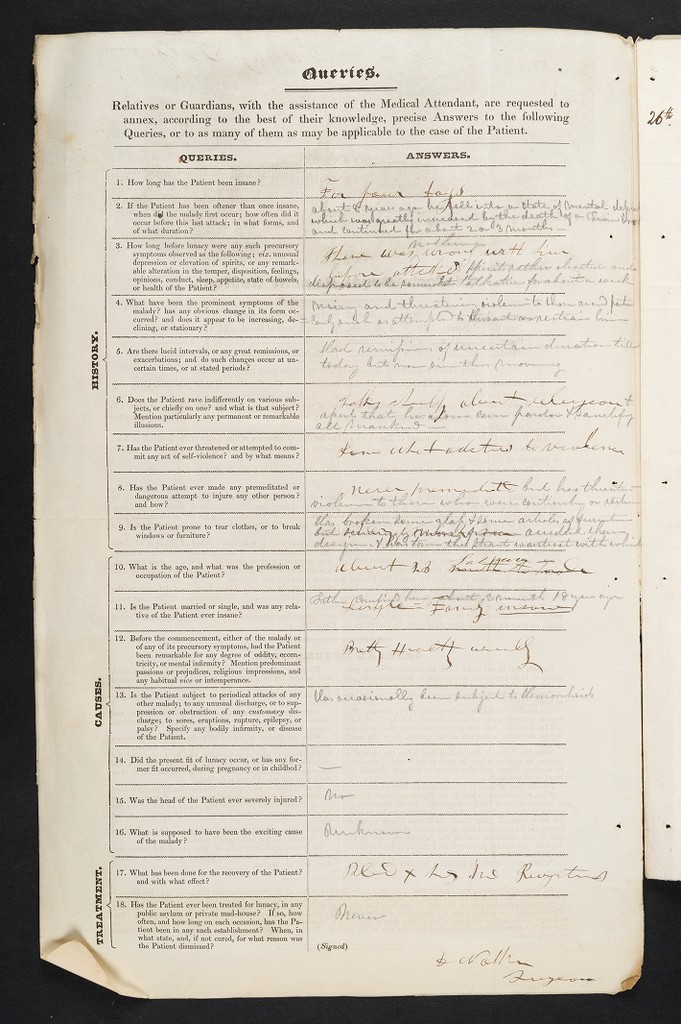 Queries.
Relatives or Guardians, with the assistance of the Medical Attendant, are requested to
annex, according to the best of their knowledge, precise Answers to the following
Queries, or to as many of them as may be applicable to the case of the Patient.
QUERIES.
ANSWERS.
HISTORY.
1. How long has the Patient been insane?
For four days
2. If the Patient has been oftener than once insane,
when did the malady first occur; how often did it
occur before this last attack; in what forms, and
of what duration?
about 8 years ago he fell into a state of mental
which was greatly increased by the death of a
and continued for about 2 or 3 months —
3. How long before lunacy were any such precursory
symptoms observed as the following; viz. unusual
depression or elevation of spirits, or any remark-
able alteration in the temper, disposition, feelings,
opinions, conduct, sleep, appetite, state of bowels,
or health of the Patient?
nothing
there was wrong with him
before attack spirits rather elective and
disposed to be somewhat for about a week
4. What have been the prominent symptoms of the
malady? has any obvious change in its form oc-
curred? and does it appear to be increasing, de-
clining, or stationary?
Noisy and threatening violence to those and
such as attempted to thwart or restrain him
5. Are there lucid intervals, or any great remissions, or
exacerbations; and do such occur at un-
certain times, or at stated periods?
Had remissions of uncertain duration till
today but none since this morning
6. Does the Patient rave indifferently on various sub-
jects, or chiefly on one? and what is that subject?
Mention particularly any permanent or remarkable
illusions.
Talks chiefly about religion &
that he alone can pardon & sanctify
all Mankind —
7. Has the Patient ever threatened or attempted to com-
mit any act of self-violence? and by what means?
Some what addicted to violence
8. Has the Patient ever made any premeditated or
dangerous attempt to injure any other person?
and how?
never premeditated but has threatened
violence to those who were
9. Is the Patient prone to tear clothes, or to break
windows or furniture?
Has broken some glass & some articles of furniture
but
design & has torn the strait waistcoat with which
CAUSES.
10. What is the age, and what was the profession or
occupation of the Patient?
about 28
11. Is the Patient married or single, and was any rela-
tive of the Patient ever insane?
Father confined here about 2 months 18 years ago
Single — Family insane
12. Before the commencement, either of the malady or
of any of its precursory symptoms, had the Patient
been remarkable for any degree of oddity, eccen-
tricity, or mental infirmity? Mention predominant
passions or prejudices, religious impressions, and
any habitual vice or intemperance.
Pretty
13. Is the Patient subject to periodical attacks of any
other malady; to any unusual discharge, or to sup-
pression or obstruction of any customary dis-
charge; to sores, eruptions, rupture, epilepsy, or
palsy? Specify any bodily infirmity, or disease
of the Patient.
Has occasionally been subject to Hemorrhoids
14. Did the present fit of lunacy occur, or has any for-
mer fit occurred, during pregnancy or in childbed?
—
15. Was the head of the Patient ever severely injured?
No
16. What is supposed to have been the exciting cause
of the malady?
Unknown
TREATMENT.
17. What has been done for the recovery of the Patient?
and with what effect?
18. Has the Patient ever been treated for lunacy, in any
public asylum or private mad-house? If so, how
often, and how long on each occasion, has the Pa-
tient been in any such establishment? When, in
what state, and, if not cured, for what reason was
the Patient dismissed?
Never
(Signed)
Walker
Surgeon
26th